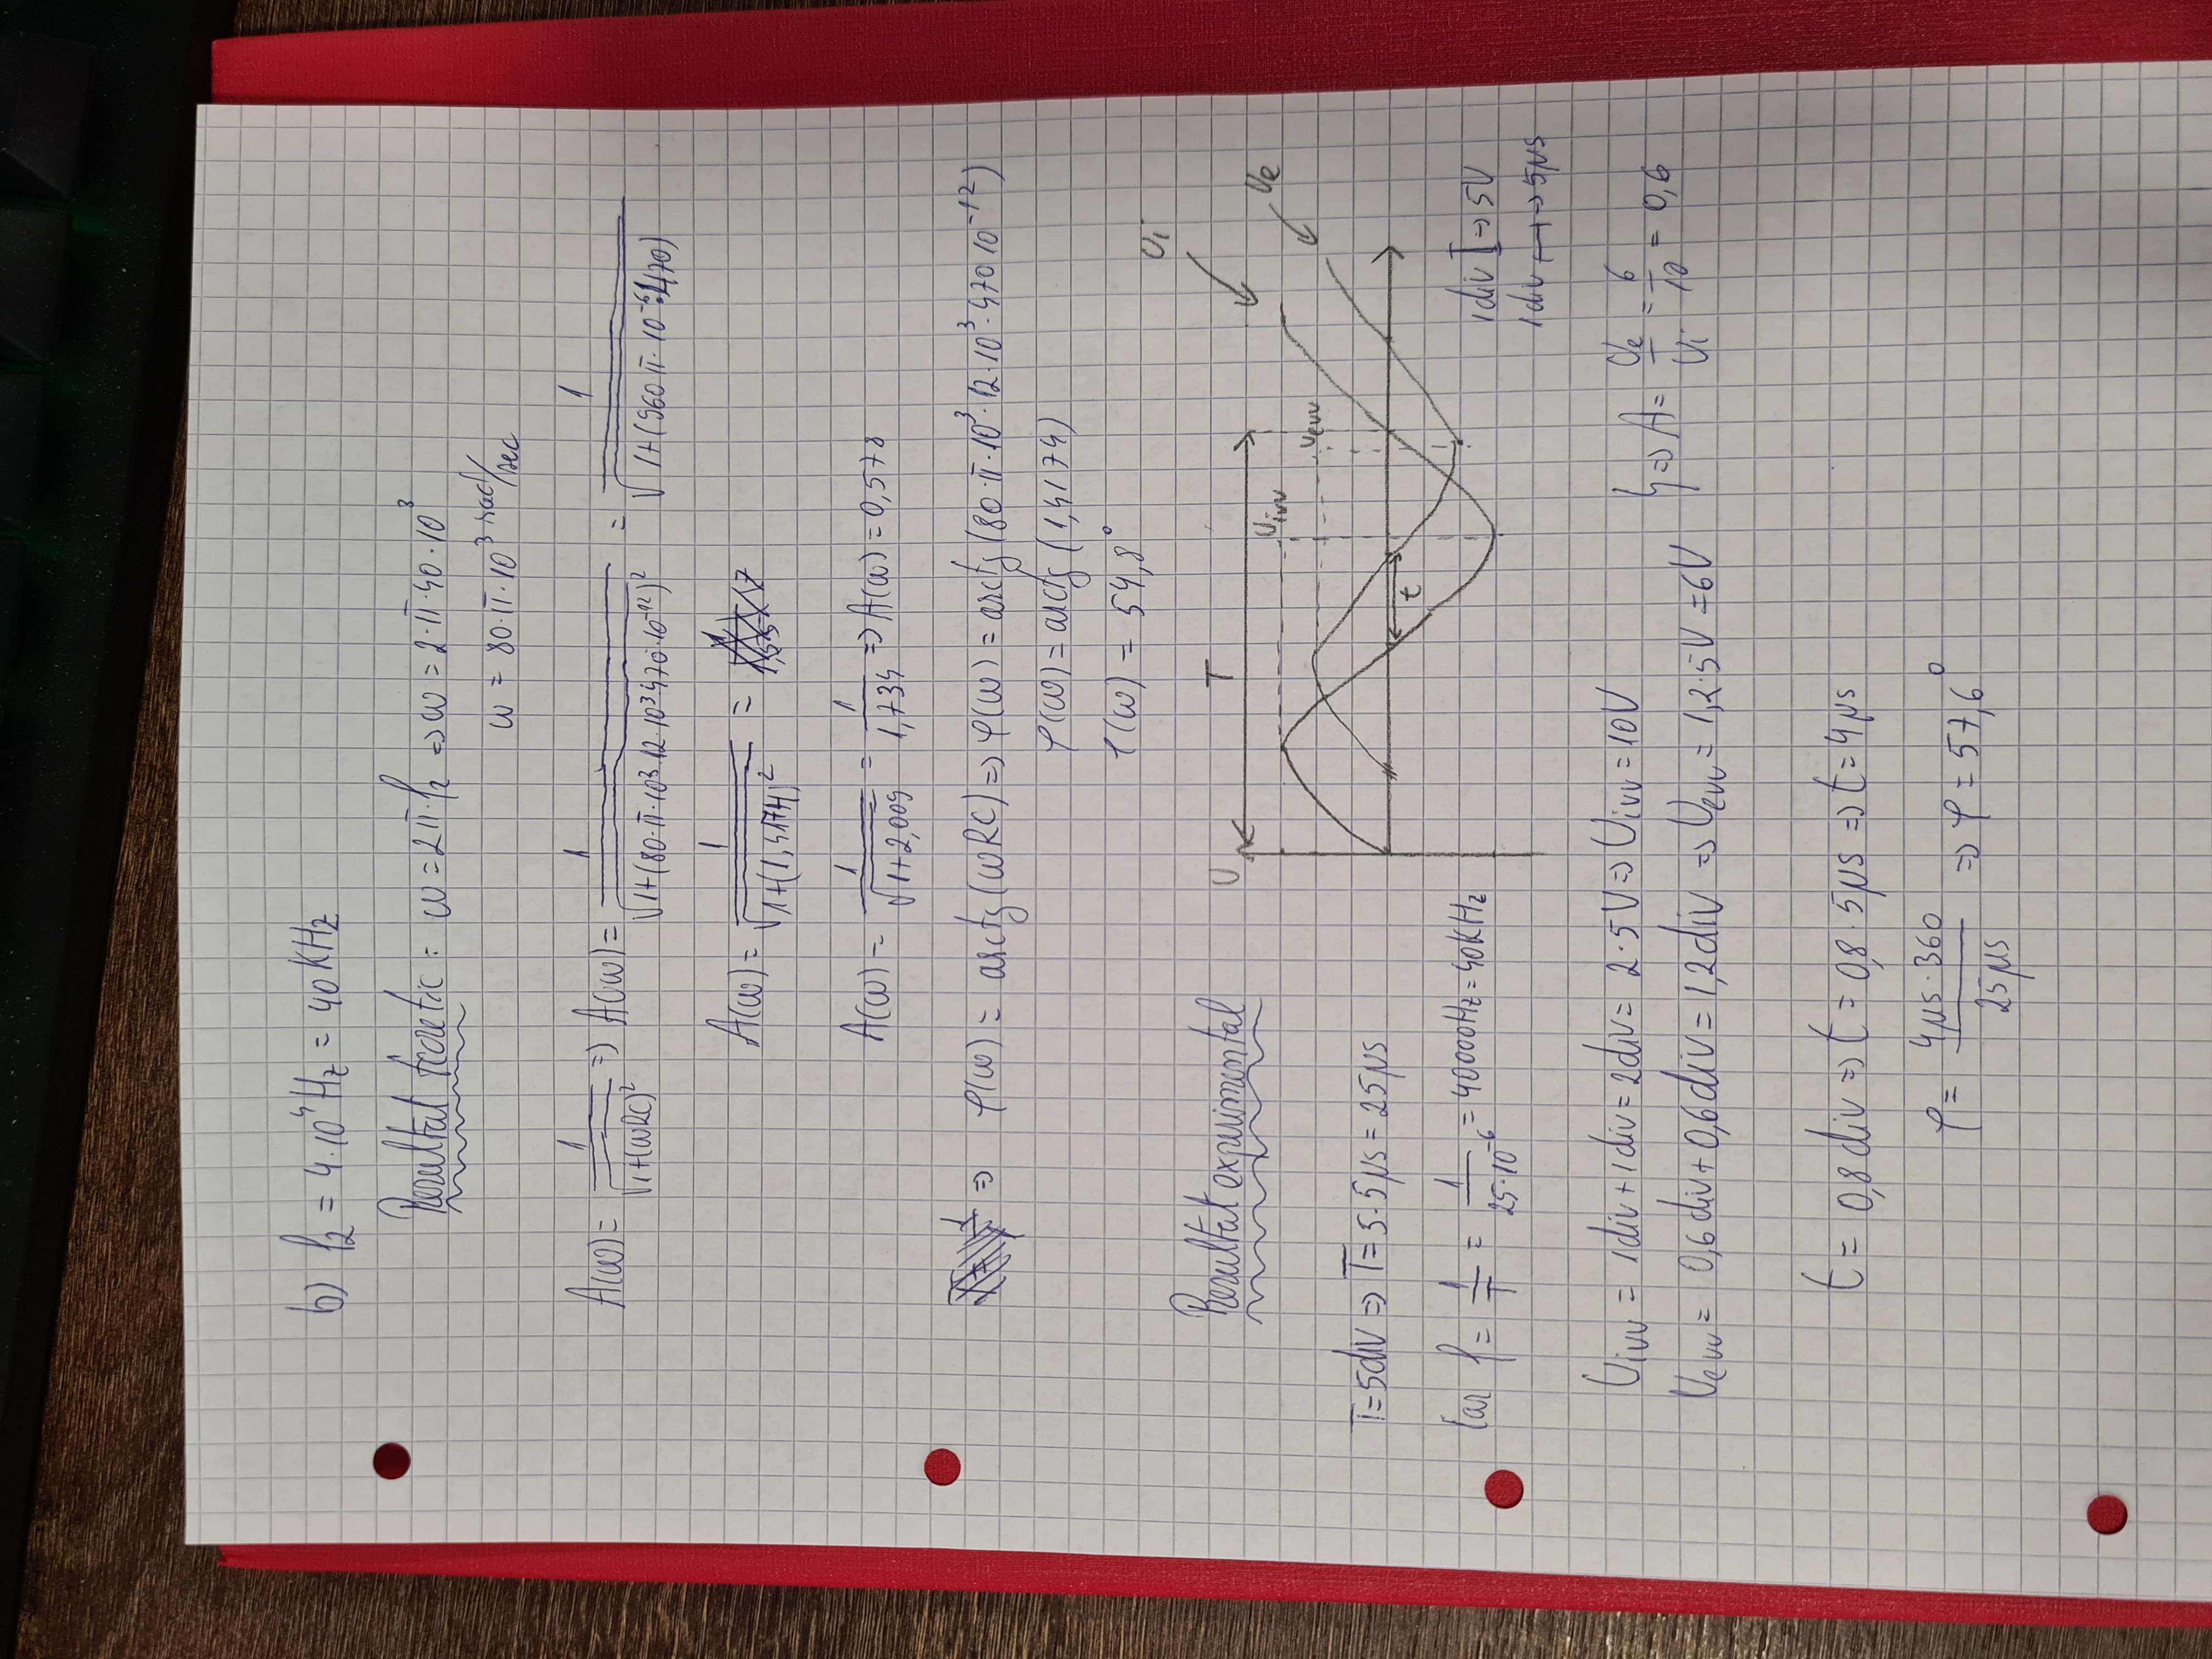 b) f₂ = 4·10⁴Hz = 40KHz
Rezultat teoretic: ω = 2π·f₂ => ω = 2·π·40·10³
ω = 80·π·10³ rad/sec
A(ω) = 1/√(1+(ωRC)²) => A(ω) = 1/√(1+(80·π·10³·12·10³·470·10⁻¹²)²) = 1/√(1+(960π·10⁻⁶·470)
A(ω) = 1/√(1+(1,4174)²) =
A(ω) = 1/√(1+2,009) = 1/1,734 => A(ω) = 0,578
=> φ(ω) = arctg(ωRC) => φ(ω) = arctg(80·π·10³·12·10³·470·10⁻¹²)
φ(ω) = arctg(1,4174)
φ(ω) = 54,8°
Ui
Rezultat experimental
U
T
Uivv
Ue
Uevv
T = 5div => T = 5·5μs = 25μs
t
Iar f = 1/T = 1/(25·10⁻⁶) = 40000Hz = 40KHz
1div I → 5V
1div ⟼ → 5μs
Uivv = 1div+1div = 2div = 2·5V => Uivv = 10V
Uevv = 0,6div+0,6div = 1,2div => Uevv = 1,2·5V = 6V
} => A = Ue/Ui = 6/10 = 0,6
t = 0,8div => t = 0,8·5μs => t = 4μs
φ = (4μs·360)/(25μs) => φ = 57,6°